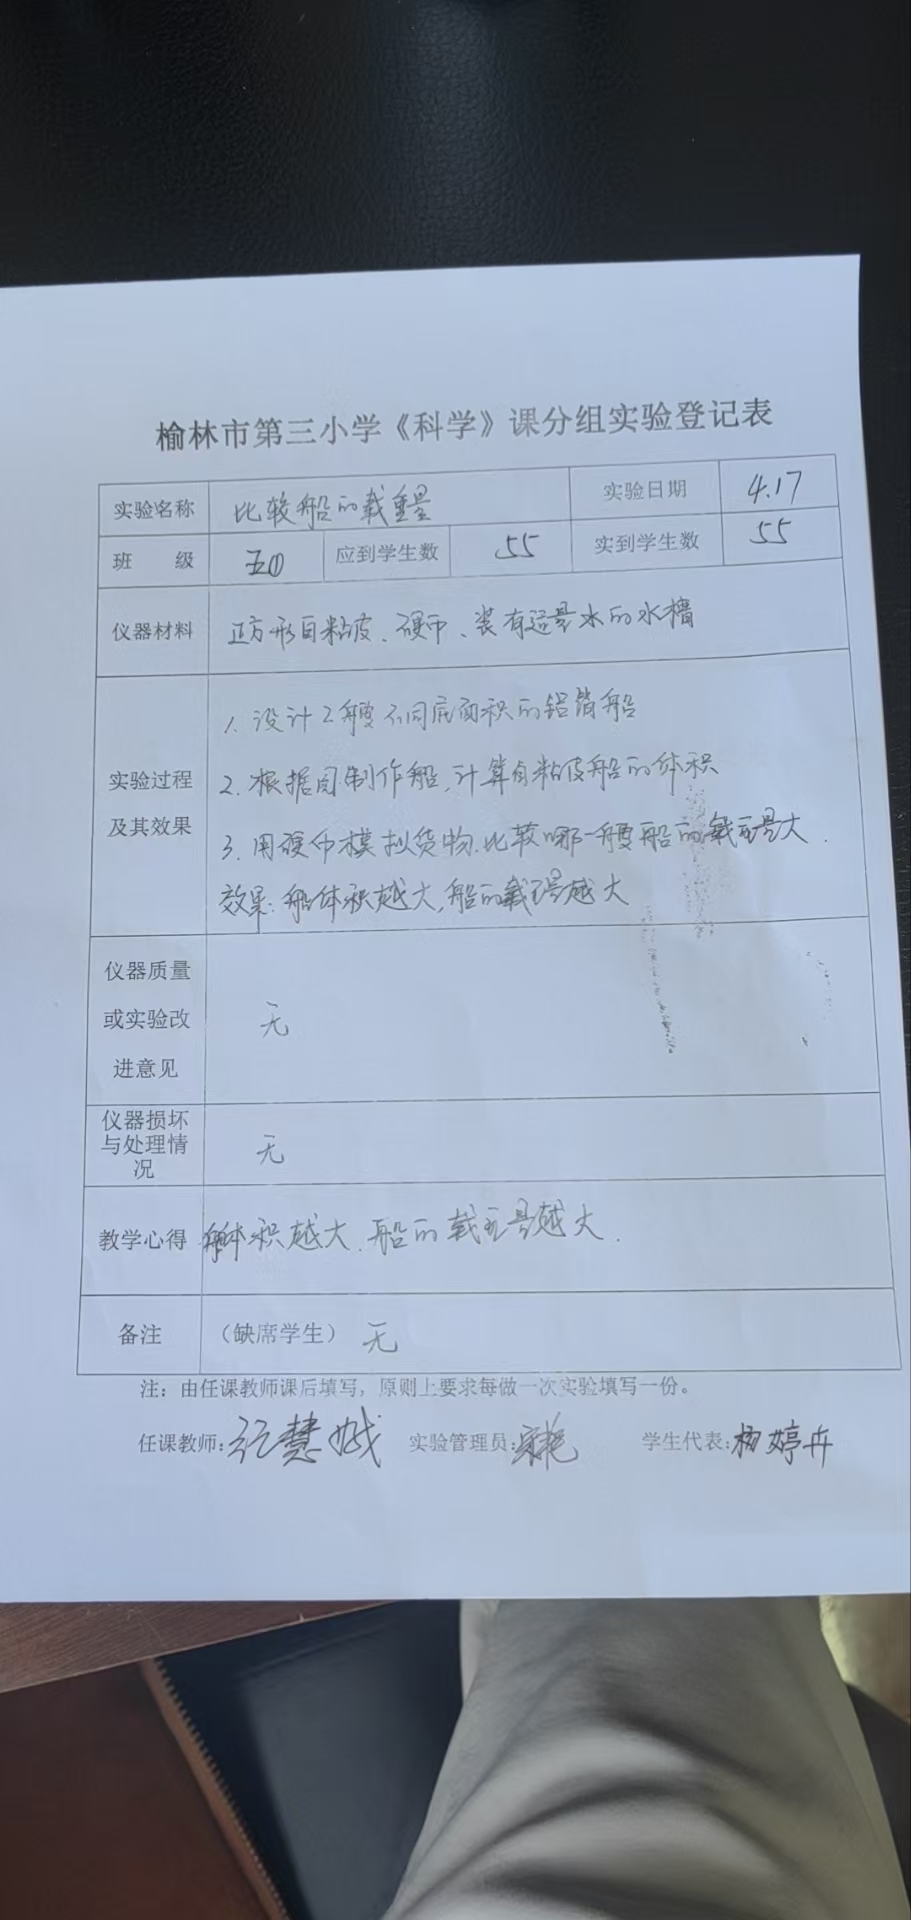 榆林市第三小学《科学》课分组实验登记表
实验名称 比较船的载重量 实验日期 4.17
班 级 五① 应到学生数 55 实到学生数 55
仪器材料 正方形自粘皮、硬币、装有适量水的水槽
实验过程及其效果
1. 设计2艘不同底面积的铝箔船
2. 根据图制作船,计算自粘皮船的体积
3. 用硬币模拟货物.比较哪一艘船的载重量大.
效果:船体积越大,船的载重量越大
仪器质量
或实验改
进意见
无
仪器损坏
与处理情
况
无
教学心得 船体积越大.船的载重量越大.
备注 (缺席学生) 无
注：由任课教师课后填写，原则上要求每做一次实验填写一份。
任课教师: 实验管理员: 学生代表:杨婷卉